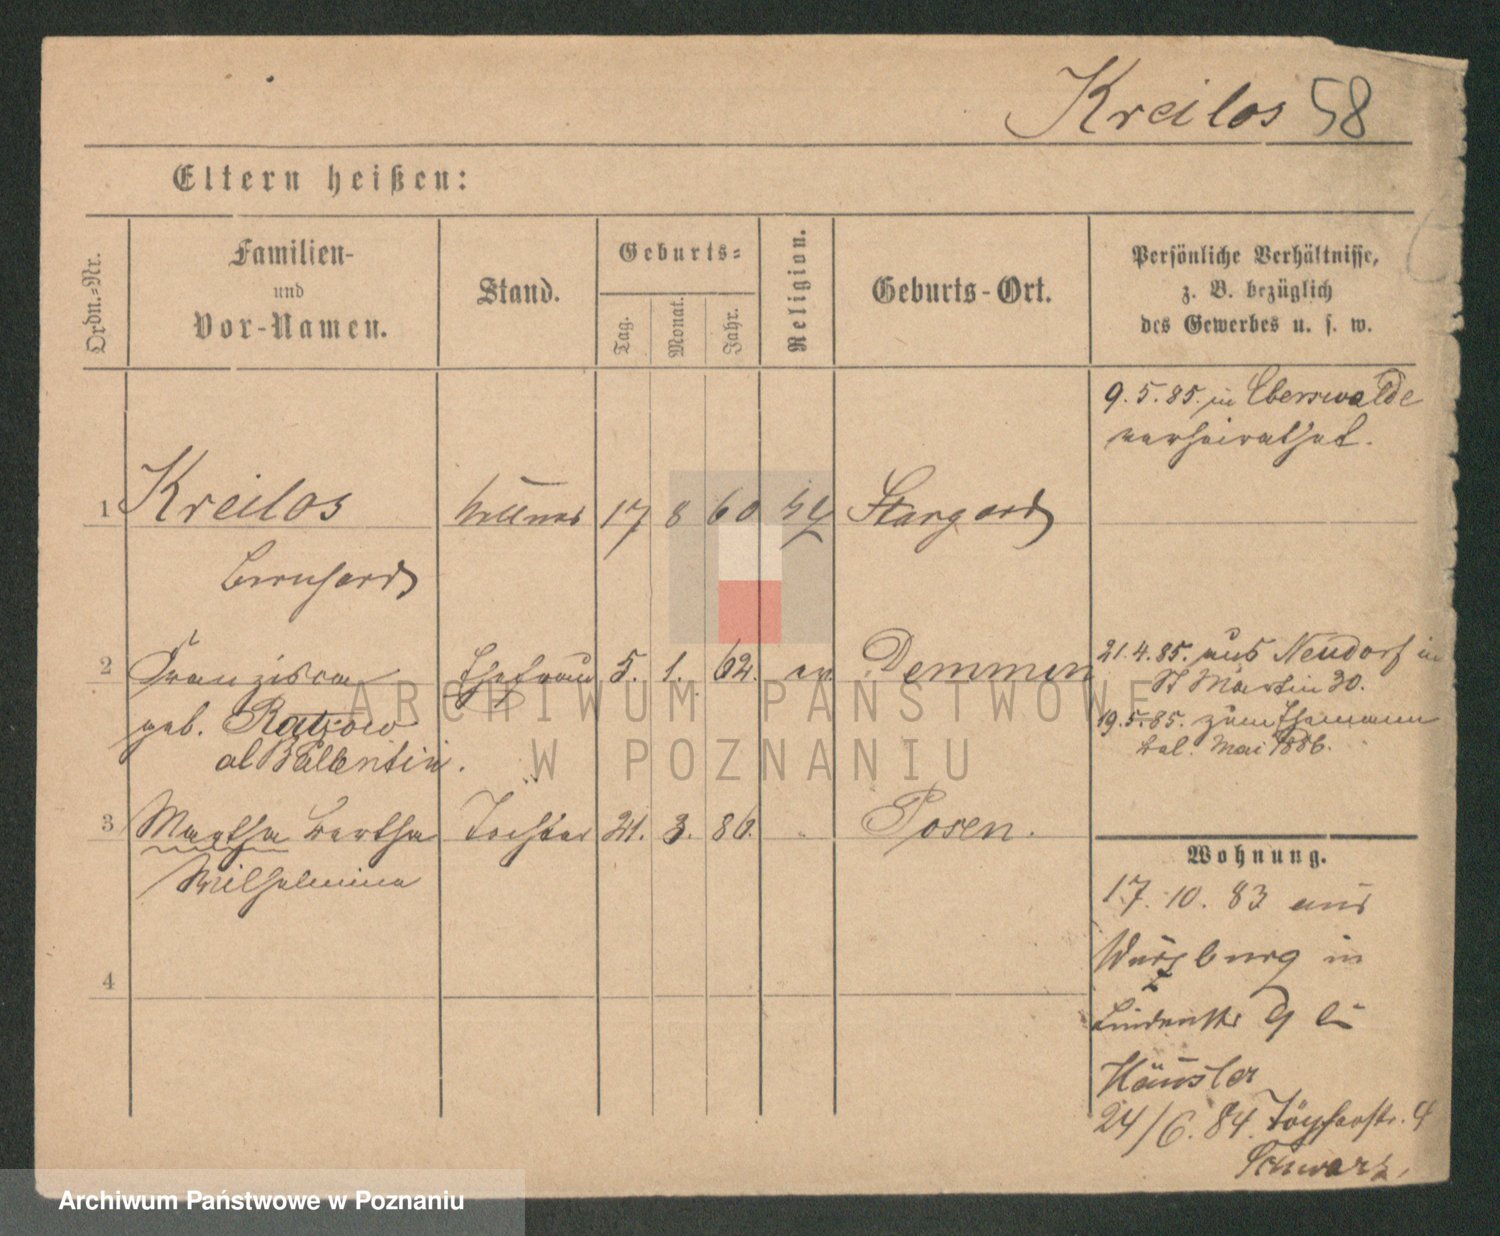 Kreilos 58
Eltern heißen:
Ordn.-Nr.
Familien-
und
Vor-Namen.
Stand.
Geburts-
Tag.
Monat.
Jahr.
Religion.
Geburts-Ort.
Persönliche Verhältnisse,
z. B. bezüglich
des Gewerbes u. s. w.
9.5.85. in Eberswalde
verheirathet.
1 Kreilos Kellner 17 8 60 Stargard
Bernhard
2 Franziska Ehefrau 5. 1. 62. ev Demmen
geb. Ratzow
al Ballentin.
21.4.85. aus Neudorf in
St Martin 30.
19.5.85. zum Ehemann
Mai 1886.
3 Martha Bertha Tochter 21. 3. 86. Posen.
Wilhelmine
4
Wohnung.
17.10.83 aus
Würzburg in
Lindenstr 9
Häusler
24/6.84. Töpferstr. 4
Schwarz.
ARCHIWUM PAŃSTWOWE
W POZNANIU
Archiwum Państwowe w Poznaniu